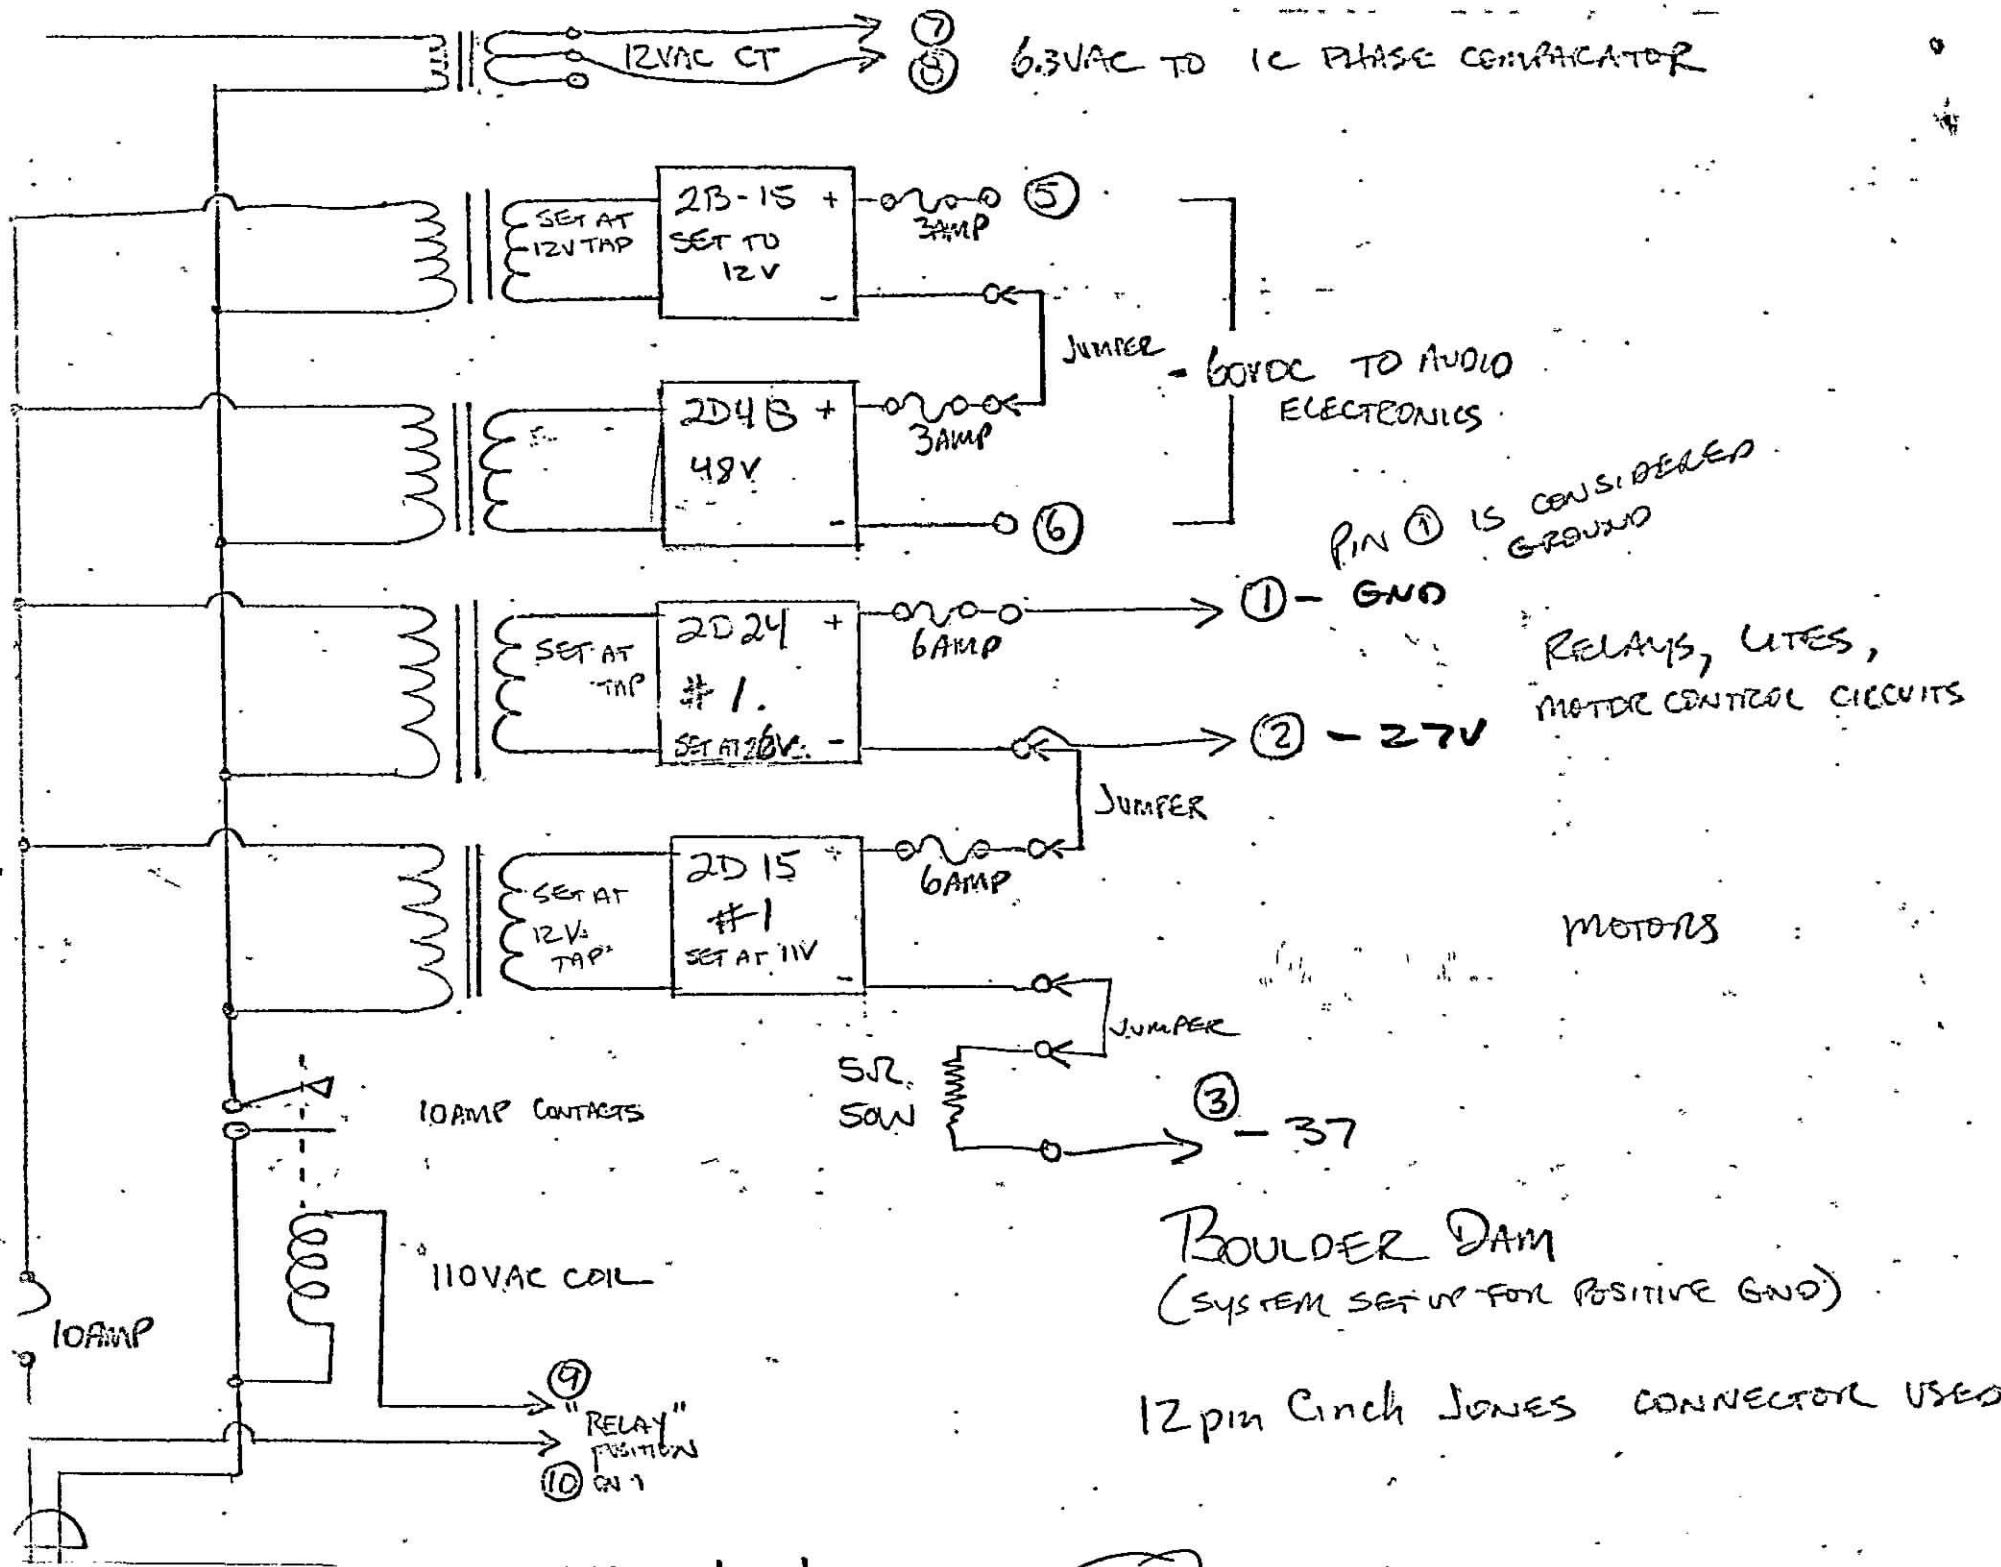 12VAC CT
7
8
6.3VAC TO IC PHASE COMPARATOR
SET AT
12V TAP
2B-15 +
SET TO
12V
-
3AMP
5
JUMPER
2D48 +
48V
-
3AMP
6
- 60VDC TO AUDIO
ELECTRONICS
PIN 1 IS CONSIDERED
GROUND
SET AT
TAP
2D24 +
#1.
SET AT 26V. -
6AMP
1 - GND
RELAYS, LITES,
MOTOR CONTROL CIRCUITS
2 - 27V
JUMPER
SET AT
12V.
TAP
2D15 +
#1
SET AT 11V
-
6AMP
MOTORS
JUMPER
5Ω
50W
3
- 37
10AMP CONTACTS
110VAC COIL
10AMP
BOULDER DAM
(SYSTEM SET UP FOR POSITIVE GND)
12 pin Cinch JONES CONNECTOR USED
9
"RELAY"
POSITION
10 ON